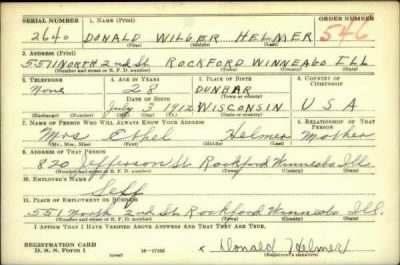 SERIAL NUMBER 1. NAME (Print) ORDER NUMBER
2640 DONALD WILBER HELMER 546
(First) (Middle) (Last)
2. ADDRESS (Print)
551 NORTH 2nd St ROCKFORD WINNEBAGO ILL
(Number and street or R. F. D. number) (Town) (County) (State)
3. TELEPHONE 4. AGE IN YEARS 5. PLACE OF BIRTH 6. COUNTRY OF CITIZENSHIP
None 28 DUNBAR
DATE OF BIRTH (Town or county)
July 3 1912 WISCONSIN U S A
(Exchange) (Number) (Mo.) (Day) (Yr.) (State or country)
7. NAME OF PERSON WHO WILL ALWAYS KNOW YOUR ADDRESS 8. RELATIONSHIP OF THAT PERSON
Mrs Ethel Helmer Mother
(Mr., Mrs., Miss) (First) (Middle) (Last)
9. ADDRESS OF THAT PERSON
820 Jefferson St. Rockford Winnebago Ills.
(Number and street or R. F. D. number) (Town) (County) (State)
10. EMPLOYER'S NAME
Self
11. PLACE OF EMPLOYMENT OR BUSINESS
551 North 2nd St. Rockford Winnebago Ill.
(Number and street or R. F. D. number) (Town) (County) (State)
I AFFIRM THAT I HAVE VERIFIED ABOVE ANSWERS AND THAT THEY ARE TRUE.
REGISTRATION CARD
D. S. S. Form 1 (over) x Donald Helmer
(Registrant's signature)